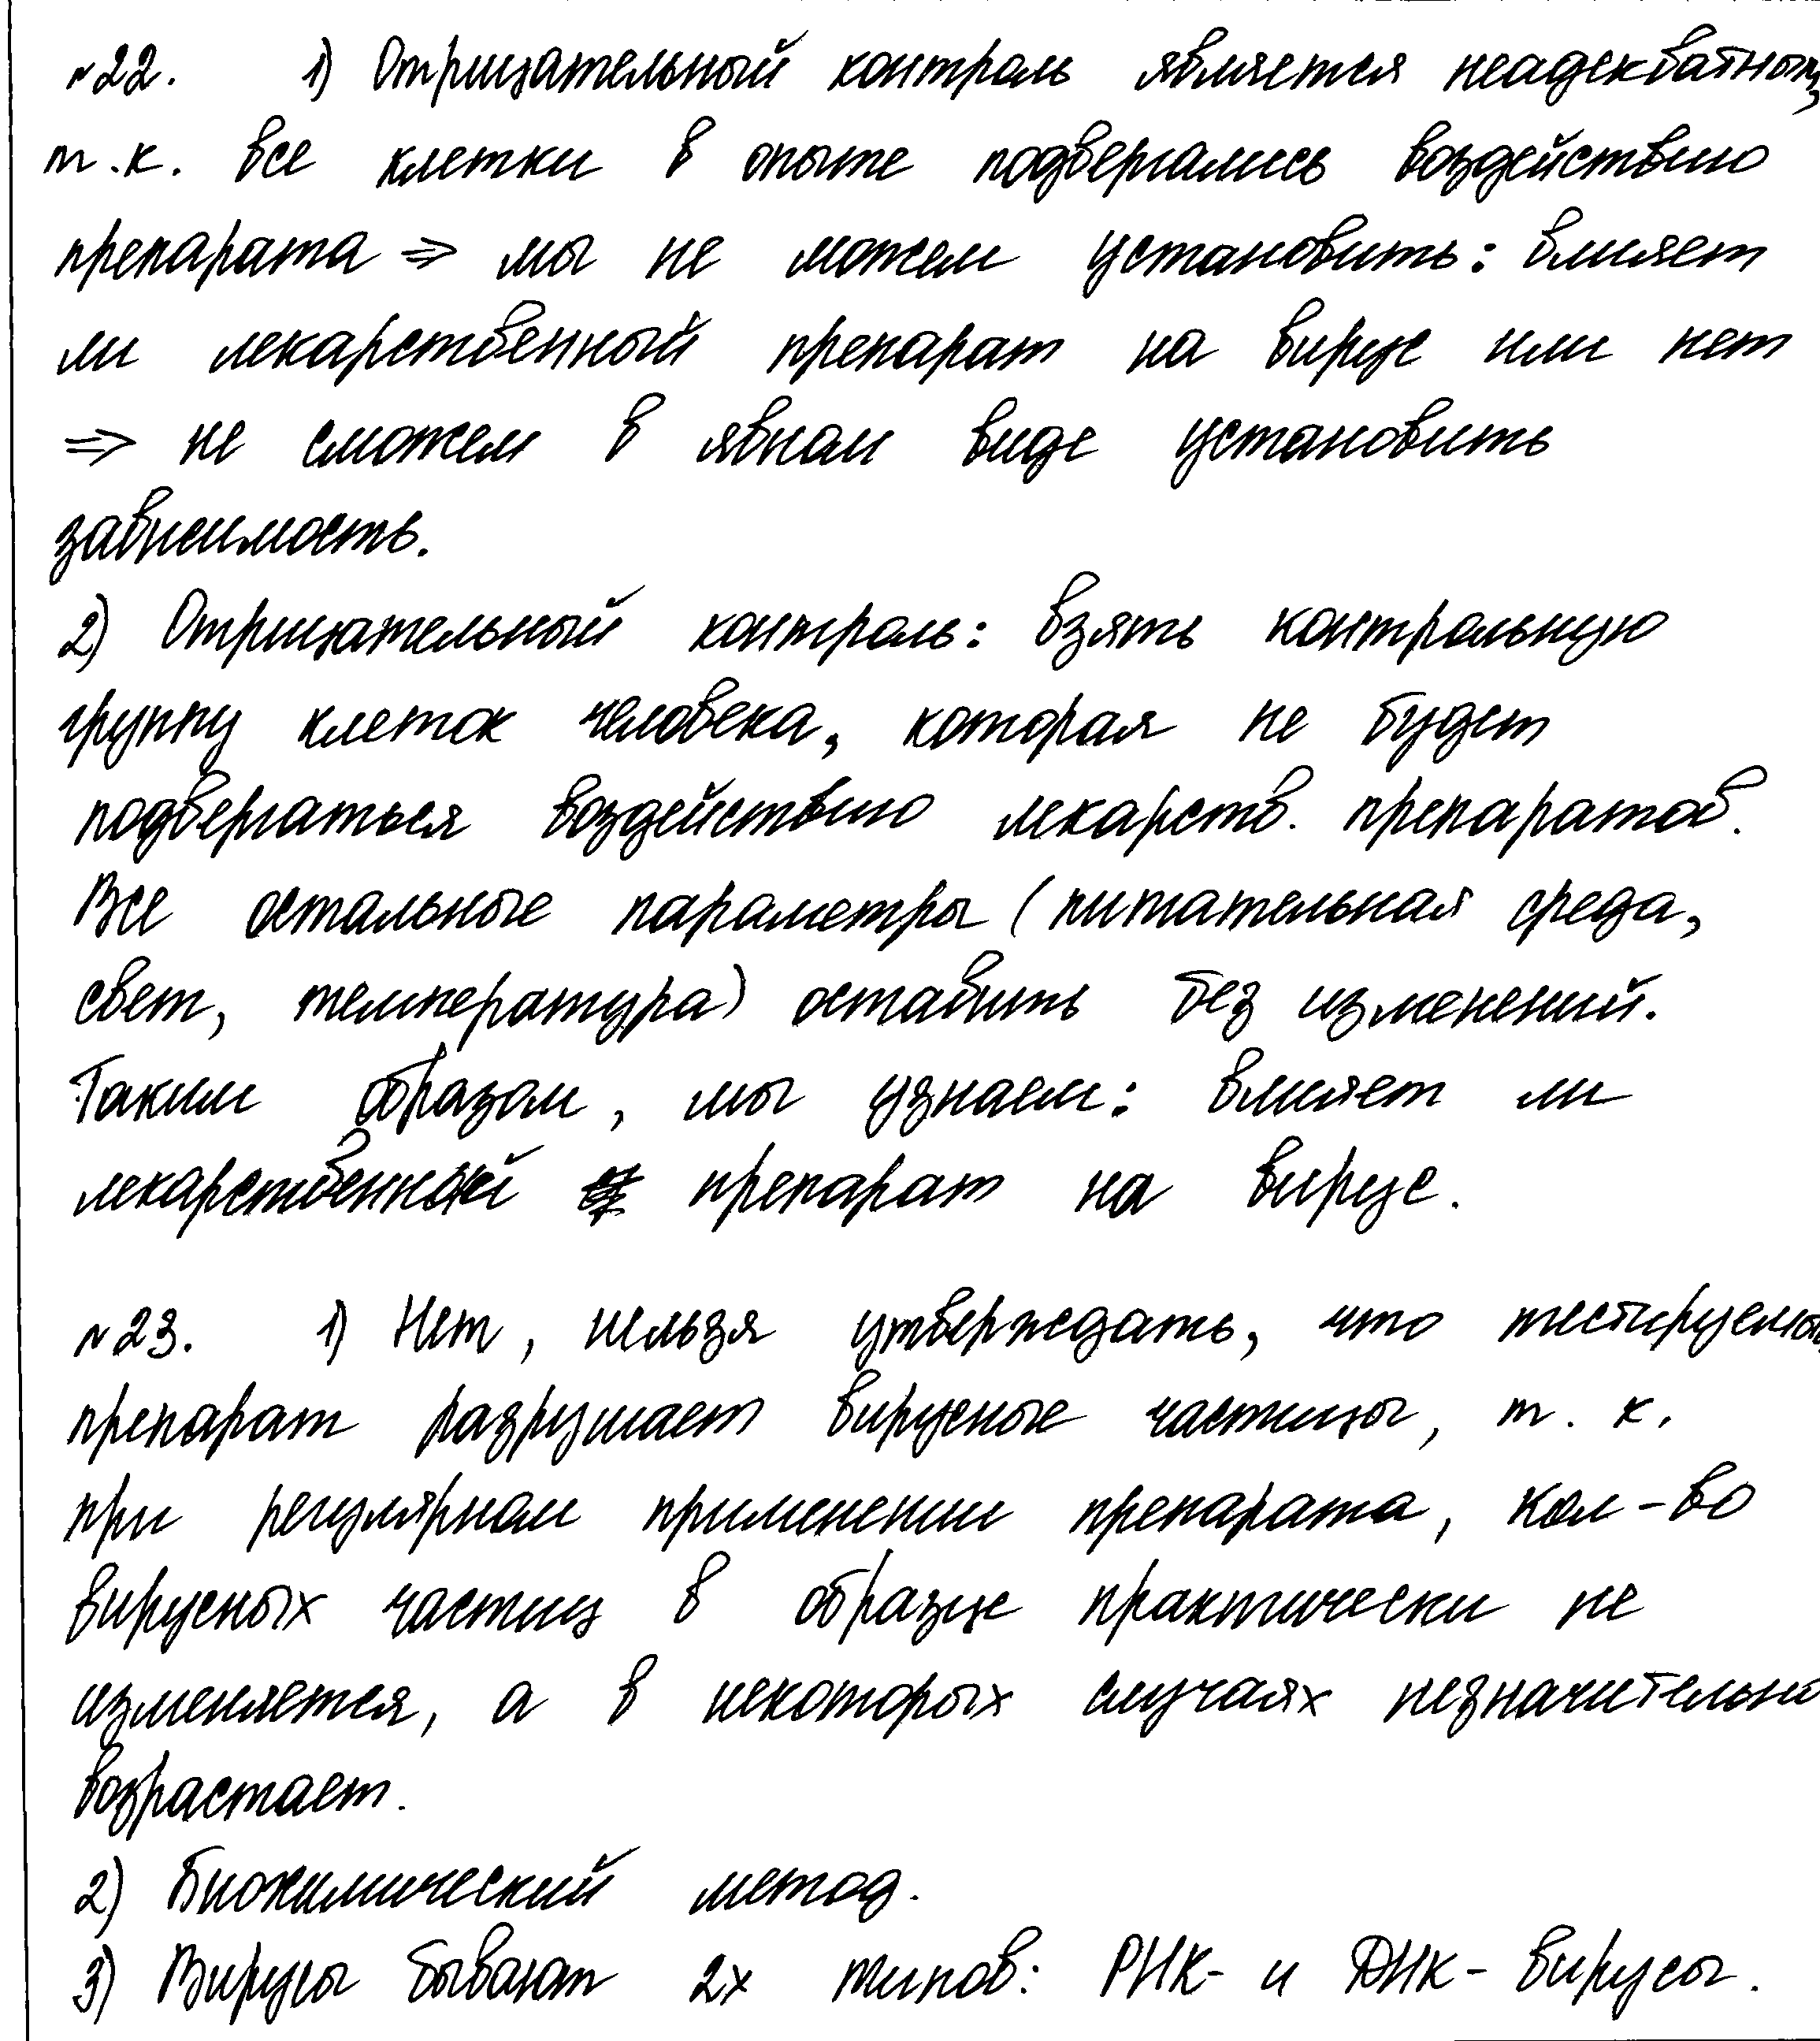 №22. 1) Отрицательный контроль является неадекватным,
т.к. все клетки в опыте подвергались воздействию
препарата ⇒ мы не можем установить: влияет
ли лекарственный препарат на вирус или нет
⇒ не сможем в явном виде установить
зависимость.
2) Отрицательный контроль: взять контрольную
группу клеток человека, которая не будет
подвергаться воздействию лекарств. препаратов.
Все остальные параметры (питательная среда,
свет, температура) оставить без изменений.
Таким образом, мы узнаем: влияет ли
лекарственный препарат на вирус.
№23. 1) Нет, нельзя утверждать, что тестируемый
препарат разрушает вирусные частицы, т. к.
при регулярном применении препарата, кол-во
вирусных частиц в образце практически не
изменяется, а в некоторых случаях незначительно
возрастает.
2) Биохимический метод.
3) Вирусы бывают 2х типов: РНК- и ДНК-вирусы.